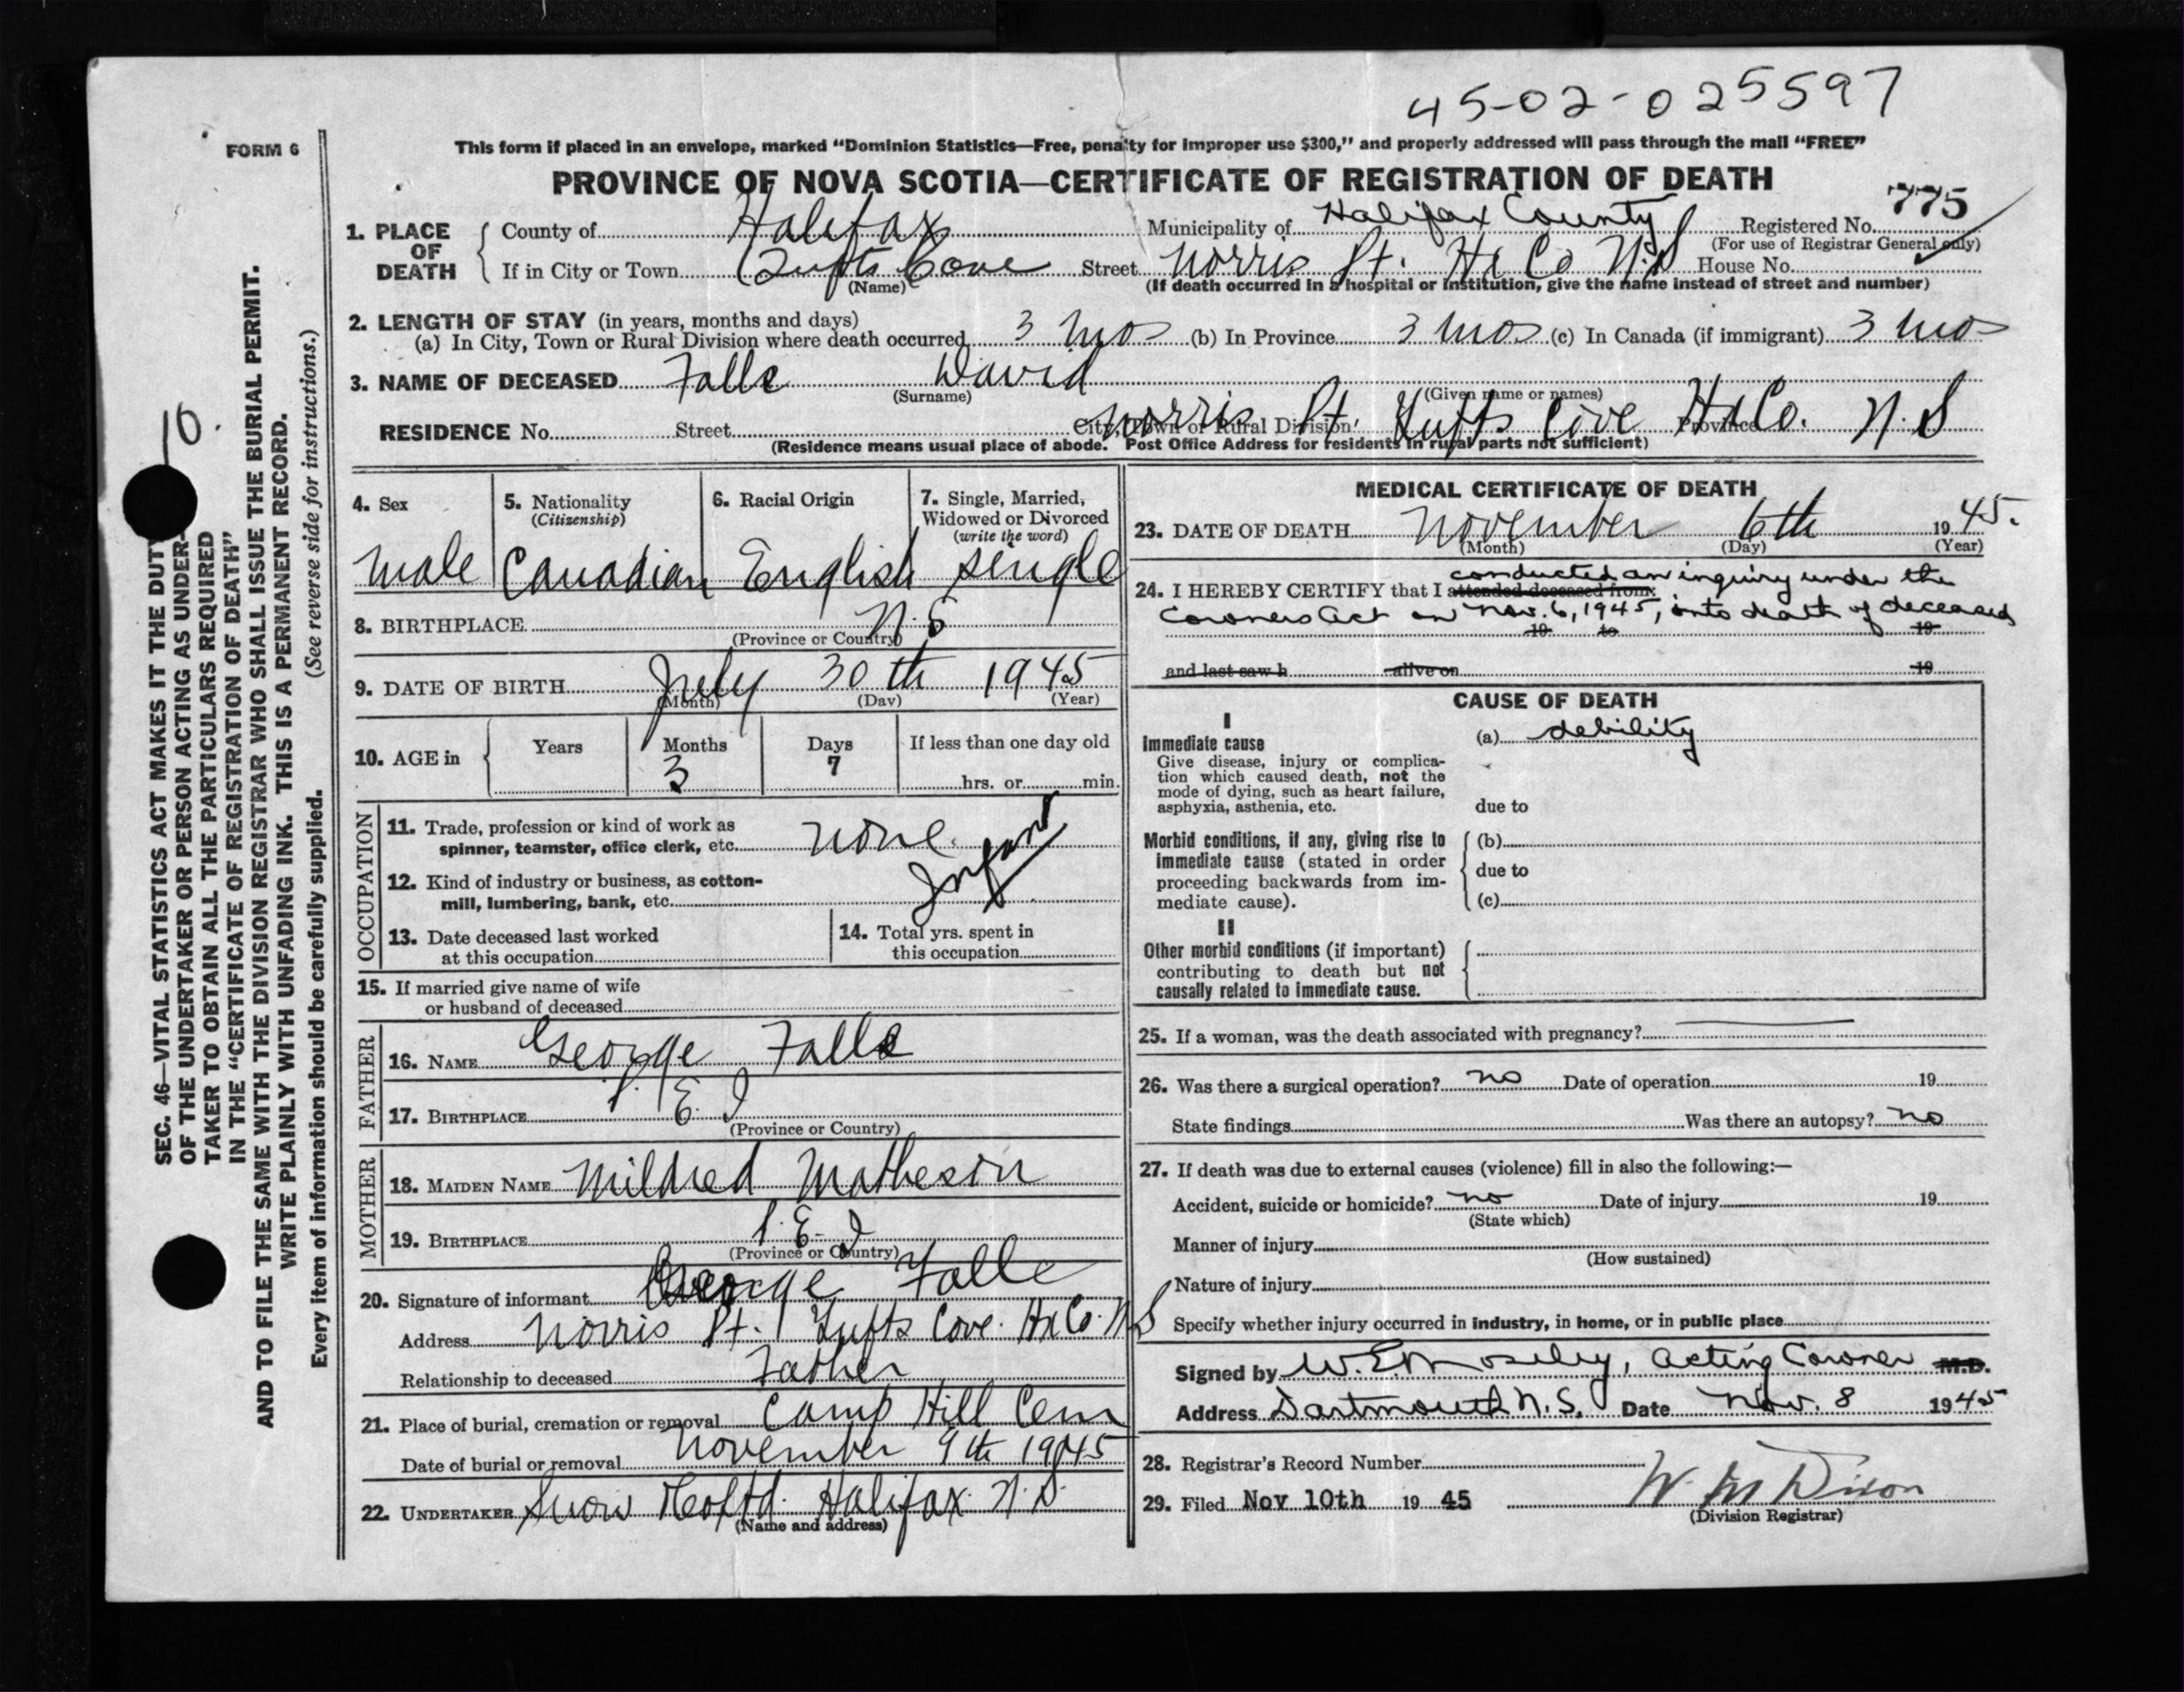 45-02-025597
FORM 6
This form if placed in an envelope, marked "Dominion Statistics—Free, penalty for improper use $300," and properly addressed will pass through the mail "FREE"
PROVINCE OF NOVA SCOTIA—CERTIFICATE OF REGISTRATION OF DEATH
775
1. PLACE OF DEATH { County of Halifax Municipality of Halifax County Registered No.
(For use of Registrar General only)
If in City or Town Tufts Cove Street Norris St. Hx Co N.S House No.
(Name) (If death occurred in a hospital or institution, give the name instead of street and number)
2. LENGTH OF STAY (in years, months and days)
(a) In City, Town or Rural Division where death occurred 3 mos (b) In Province 3 mos (c) In Canada (if immigrant) 3 mos
3. NAME OF DECEASED Falle David
(Surname) (Given name or names)
RESIDENCE No. Street City, Town or Rural Division Norris St. Tufts Cove Province Hx Co. N.S
(Residence means usual place of abode. Post Office Address for residents in rural parts not sufficient)
4. Sex
male
5. Nationality
(Citizenship)
Canadian
6. Racial Origin
English
7. Single, Married,
Widowed or Divorced
(write the word)
single
8. BIRTHPLACE N.S
(Province or Country)
9. DATE OF BIRTH July 30th 1945
(Month) (Day) (Year)
10. AGE in { Years Months Days If less than one day old
3 7 hrs. or min.
OCCUPATION
11. Trade, profession or kind of work as
spinner, teamster, office clerk, etc. none.
Infant
12. Kind of industry or business, as cotton-
mill, lumbering, bank, etc.
13. Date deceased last worked
at this occupation
14. Total yrs. spent in
this occupation
15. If married give name of wife
or husband of deceased
FATHER
16. NAME George Falle
17. BIRTHPLACE P. E. I
(Province or Country)
MOTHER
18. MAIDEN NAME Mildred Matheson
19. BIRTHPLACE P. E. I
(Province or Country)
20. Signature of informant George Falle
Address Norris St. Tufts Cove. Hx Co. N.S
Relationship to deceased Father
21. Place of burial, cremation or removal Camp Hill Cem
Date of burial or removal November 9th 1945
22. UNDERTAKER Snow & Co Ltd. Halifax. N.S.
(Name and address)
MEDICAL CERTIFICATE OF DEATH
23. DATE OF DEATH November 6th 1945.
(Month) (Day) (Year)
24. I HEREBY CERTIFY that I attended deceased from: conducted an inquiry under the
Coroners Act on Nov. 6, 1945, into death of deceased
19 to 19
and last saw h alive on 19
CAUSE OF DEATH
I
Immediate cause
Give disease, injury or complica-
tion which caused death, not the
mode of dying, such as heart failure,
asphyxia, asthenia, etc.
(a) debility
due to
Morbid conditions, if any, giving rise to
immediate cause (stated in order
proceeding backwards from im-
mediate cause).
(b)
due to
(c)
II
Other morbid conditions (if important)
contributing to death but not
causally related to immediate cause.
25. If a woman, was the death associated with pregnancy?
26. Was there a surgical operation? no Date of operation 19
State findings Was there an autopsy? no
27. If death was due to external causes (violence) fill in also the following:—
Accident, suicide or homicide? no Date of injury 19
(State which)
Manner of injury
(How sustained)
Nature of injury
Specify whether injury occurred in industry, in home, or in public place
Signed by W. E. Moseley, Acting Coroner M.D.
Address Dartmouth N.S. Date Nov. 8 1945
28. Registrar's Record Number
29. Filed Nov 10th 1945 W. M Dixon
(Division Registrar)
10.
SEC. 46—VITAL STATISTICS ACT MAKES IT THE DUTY
OF THE UNDERTAKER OR PERSON ACTING AS UNDER-
TAKER TO OBTAIN ALL THE PARTICULARS REQUIRED
IN THE "CERTIFICATE OF REGISTRATION OF DEATH"
AND TO FILE THE SAME WITH THE DIVISION REGISTRAR WHO SHALL ISSUE THE BURIAL PERMIT.
WRITE PLAINLY WITH UNFADING INK. THIS IS A PERMANENT RECORD.
(See reverse side for instructions.)
Every item of information should be carefully supplied.